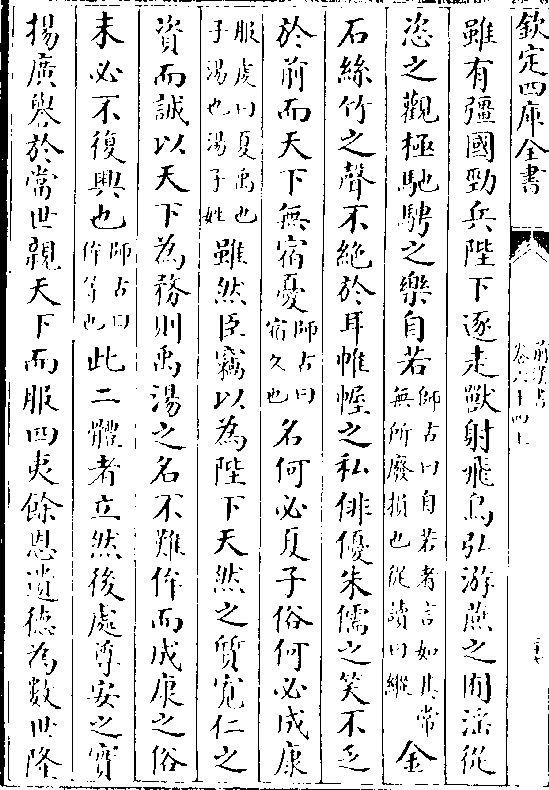 欽定四庫全書
前漢書
卷六十四上
雖有彊國勁兵陛下逐走獸射飛鳥弘游燕之囿淫從
恣之觀極馳騁之樂自若師古曰自若者言如其常無所廢損也從讀曰縱金
石絲竹之聲不絶於耳帷幄之私俳優朱儒之笑不乏
於前而天下無宿憂師古曰宿久也名何必夏子俗何必成康
服䖍曰夏禹也子湯也湯子姓雖然臣竊以為陛下天然之質寛仁之
資而誠以天下為務則禹湯之名不難侔而成康之俗
未必不復興也師古曰侔等也此二體者立然後處尊安之實
揚廣譽於當世親天下而服四夷餘恩遺德為數世隆